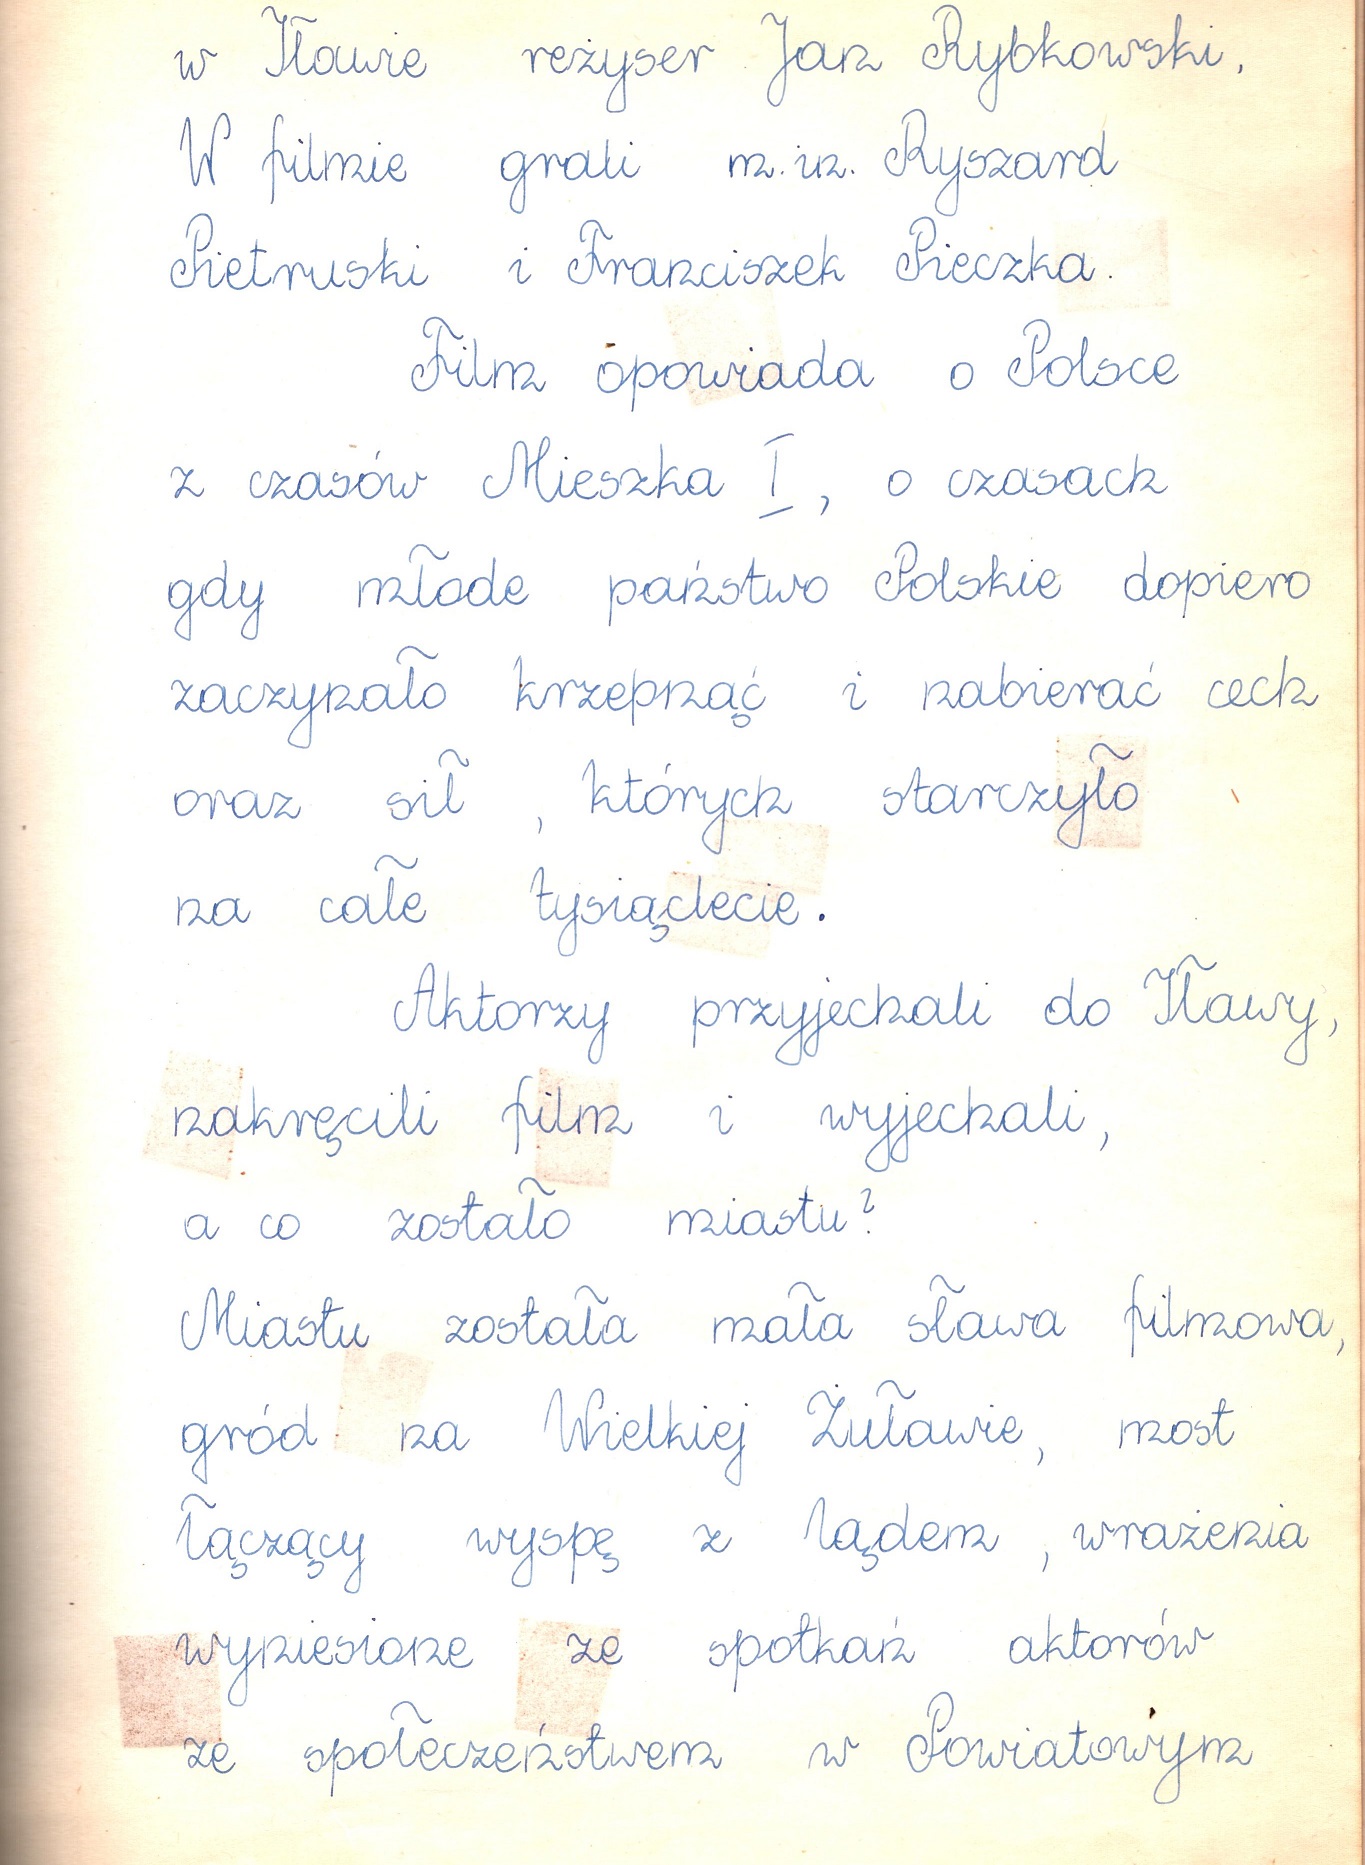 w Iławie reżyser Jan Rybkowski,
W filmie grali m.in. Ryszard
Pietruski i Franciszek Pieczka.
Film opowiada o Polsce
z czasów Mieszka I, o czasach
gdy młode państwo Polskie dopiero
zaczynało krzepnąć i nabierać cech
oraz sił, których starczyło
na całe tysiąclecie.
Aktorzy przyjechali do Iławy,
nakręcili film i wyjechali,
a co zostało miastu?
Miastu została mała sława filmowa,
gród na Wielkiej Żuławie, most
łączący wyspę z lądem, wrażenia
wyniesione ze spotkań aktorów
ze społeczeństwem w Powiatowym